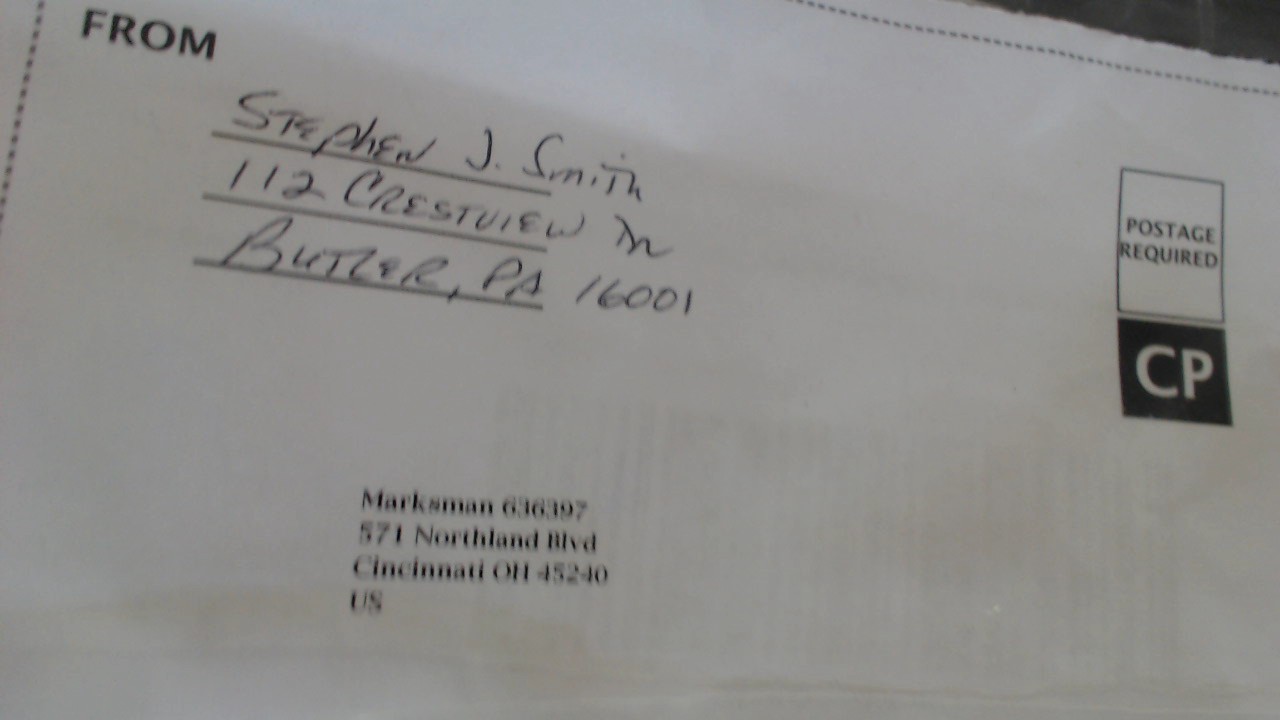 FROM
STEPhEN J. Smith
112 CRESTVIEW
BUTLER, PA 16001
POSTAGE
REQUIRED
CP
Marksman 636397
571 Northland Blvd
Cincinnati OH 45240
US